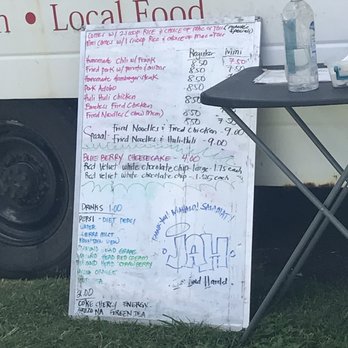 n • Local Food
Comes w/ 2 scoop Rice & choice of mac or Toss
mini comes w/ 1 scoop Rice & choice of mac or Toss
Regular mini
Homemade Chili w/ Frank 8.50 7.50
Fried pork w/ 8.50 7.50
Homemade Hamburger Steak 8.50
Pork Adobo 8.50
Huli Huli Chicken 8.50
Boneless Fried Chicken 8.50
Fried Noodles 8.50
Special: Fried Noodles & Fried Chicken - 9.00
Fried Noodles & Huli-Huli - 9.00
BLUE BERRY CHEESECAKE - 4.00
Red Velvet white chocolate chip large - 1.75 each
Red Velvet white chocolate chip - 1.25 each
DRINKS 1.00
PEPSI - DIET PEPSI
WATER
SIERRA MIST
MOUNTAIN DEW
GRAPE
ISLAND HEAD RED CREAM
ISLAND HEAD STRAWBERRY
ORANGE
3.00
COKE CHERRY ENERGY
GREEN TEA
THANK YOU! MAHALO! SALAMAT!
JAH
Lord Harold